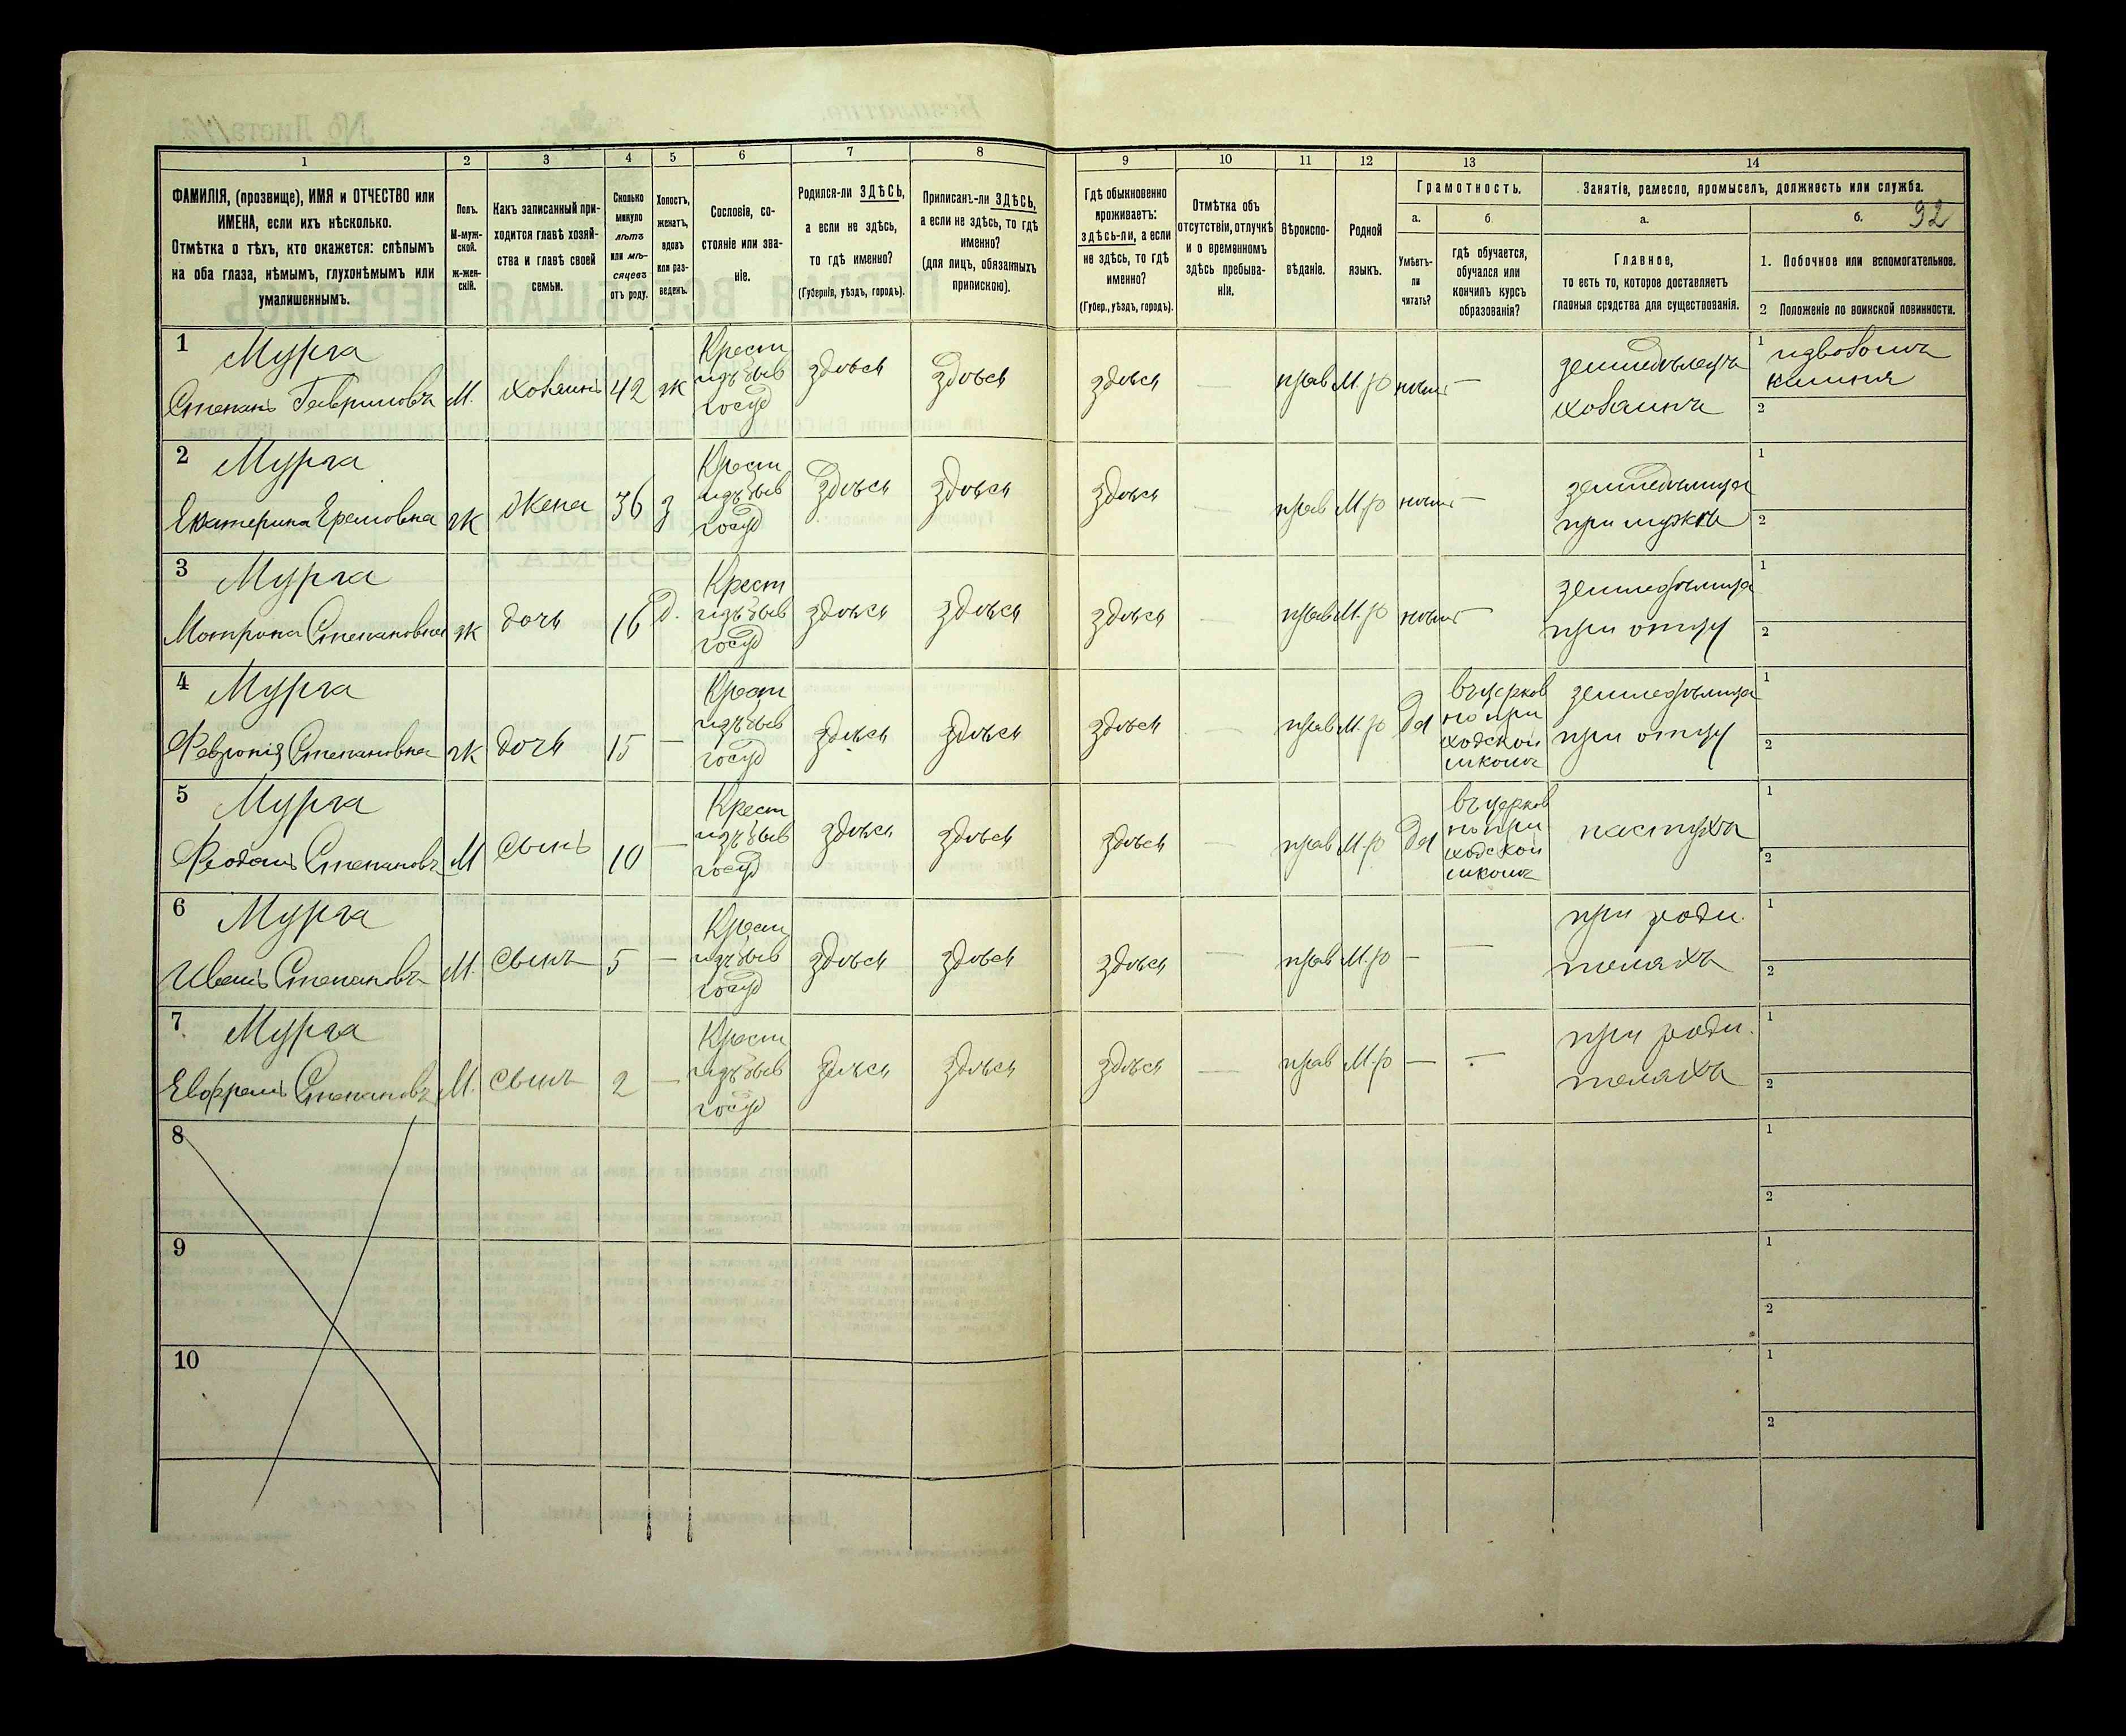 92
1 2 3 4 5 6 7 8 9 10 11 12 13 14
ФАМИЛІЯ, (прозвище), ИМЯ и ОТЧЕСТВО или
ИМЕНА, если ихъ нѣсколько.
Отмѣтка о тѣхъ, кто окажется: слѣпымъ
на оба глаза, нѣмымъ, глухонѣмымъ или
умалишеннымъ.
Полъ.
М-муж-
ской.
Ж-жен-
скій.
Какъ записанный при-
ходится главѣ хозяй-
ства и главѣ своей
семьи.
Сколько
минуло
лѣтъ
или мѣ-
сяцевъ
отъ роду.
Холостъ,
женатъ,
вдовъ
или раз-
веденъ.
Сословіе, со-
стояніе или зва-
ніе.
Родился-ли ЗДѢСЬ,
а если не здѣсь,
то гдѣ именно?
(Губернія, уѣздъ, городъ).
Приписанъ-ли ЗДѢСЬ,
а если не здѣсь, то гдѣ
именно?
(для лицъ, обязанныхъ
припискою).
Гдѣ обыкновенно
проживаетъ:
здѣсь-ли, а если
не здѣсь, то гдѣ
именно?
(Губер., уѣздъ, городъ).
Отмѣтка объ
отсутствіи, отлучкѣ
и о временномъ
здѣсь пребыва-
ніи.
Вѣроиспо-
вѣданіе.
Родной
языкъ.
Грамотность.
а. б.
Умѣетъ-
ли
читать?
гдѣ обучается,
обучался или
кончилъ курсъ
образованія?
Занятіе, ремесло, промыселъ, должность или служба.
а. б.
Главное,
то есть то, которое доставляетъ
главныя средства для существованія.
1. Побочное или вспомогательное.
2 Положеніе по воинской повинности.
1 Мурга
Степанъ Гавриловъ М. хозяинъ 42 ж
Крест
изъ быв
госуд
здѣсь здѣсь здѣсь — прав М.р нѣтъ —
земледѣлецъ
хозяинъ
1
2
2 Мурга
Екатерина Ермовна ж жена 36 з
Крест
изъ быв
госуд
здѣсь здѣсь здѣсь — прав М.р нѣтъ —
земледѣлица
при мужѣ
1
2
3 Мурга
Мотрона Степановна ж дочь 16 д.
Крест
изъ быв
госуд
здѣсь здѣсь здѣсь — прав М.р нѣтъ —
земледѣлица
при отцу
1
2
4 Мурга
Февронія Степановна ж дочь 15 —
Крест
изъ быв
госуд
здѣсь здѣсь здѣсь — прав М.р да
въ церков
но при
ходской
школѣ
земледѣлица
при отцу
1
2
5 Мурга
Феодотъ Степановъ М сынъ 10 —
Крест
изъ быв
госуд
здѣсь здѣсь здѣсь — прав М.р да
въ церков
но при
ходской
школѣ
пастухъ
1
2
6 Мурга
Иванъ Степановъ М. сынъ 5 —
Крест
изъ быв
госуд
здѣсь здѣсь здѣсь — прав М.р — —
при роди.
теляхъ
1
2
7 Мурга
Евфремъ Степановъ М. сынъ 2 —
Крест
изъ быв
госуд
здѣсь здѣсь здѣсь — прав М.р — —
при роди.
теляхъ
1
2
8
1
2
9
1
2
10
1
2